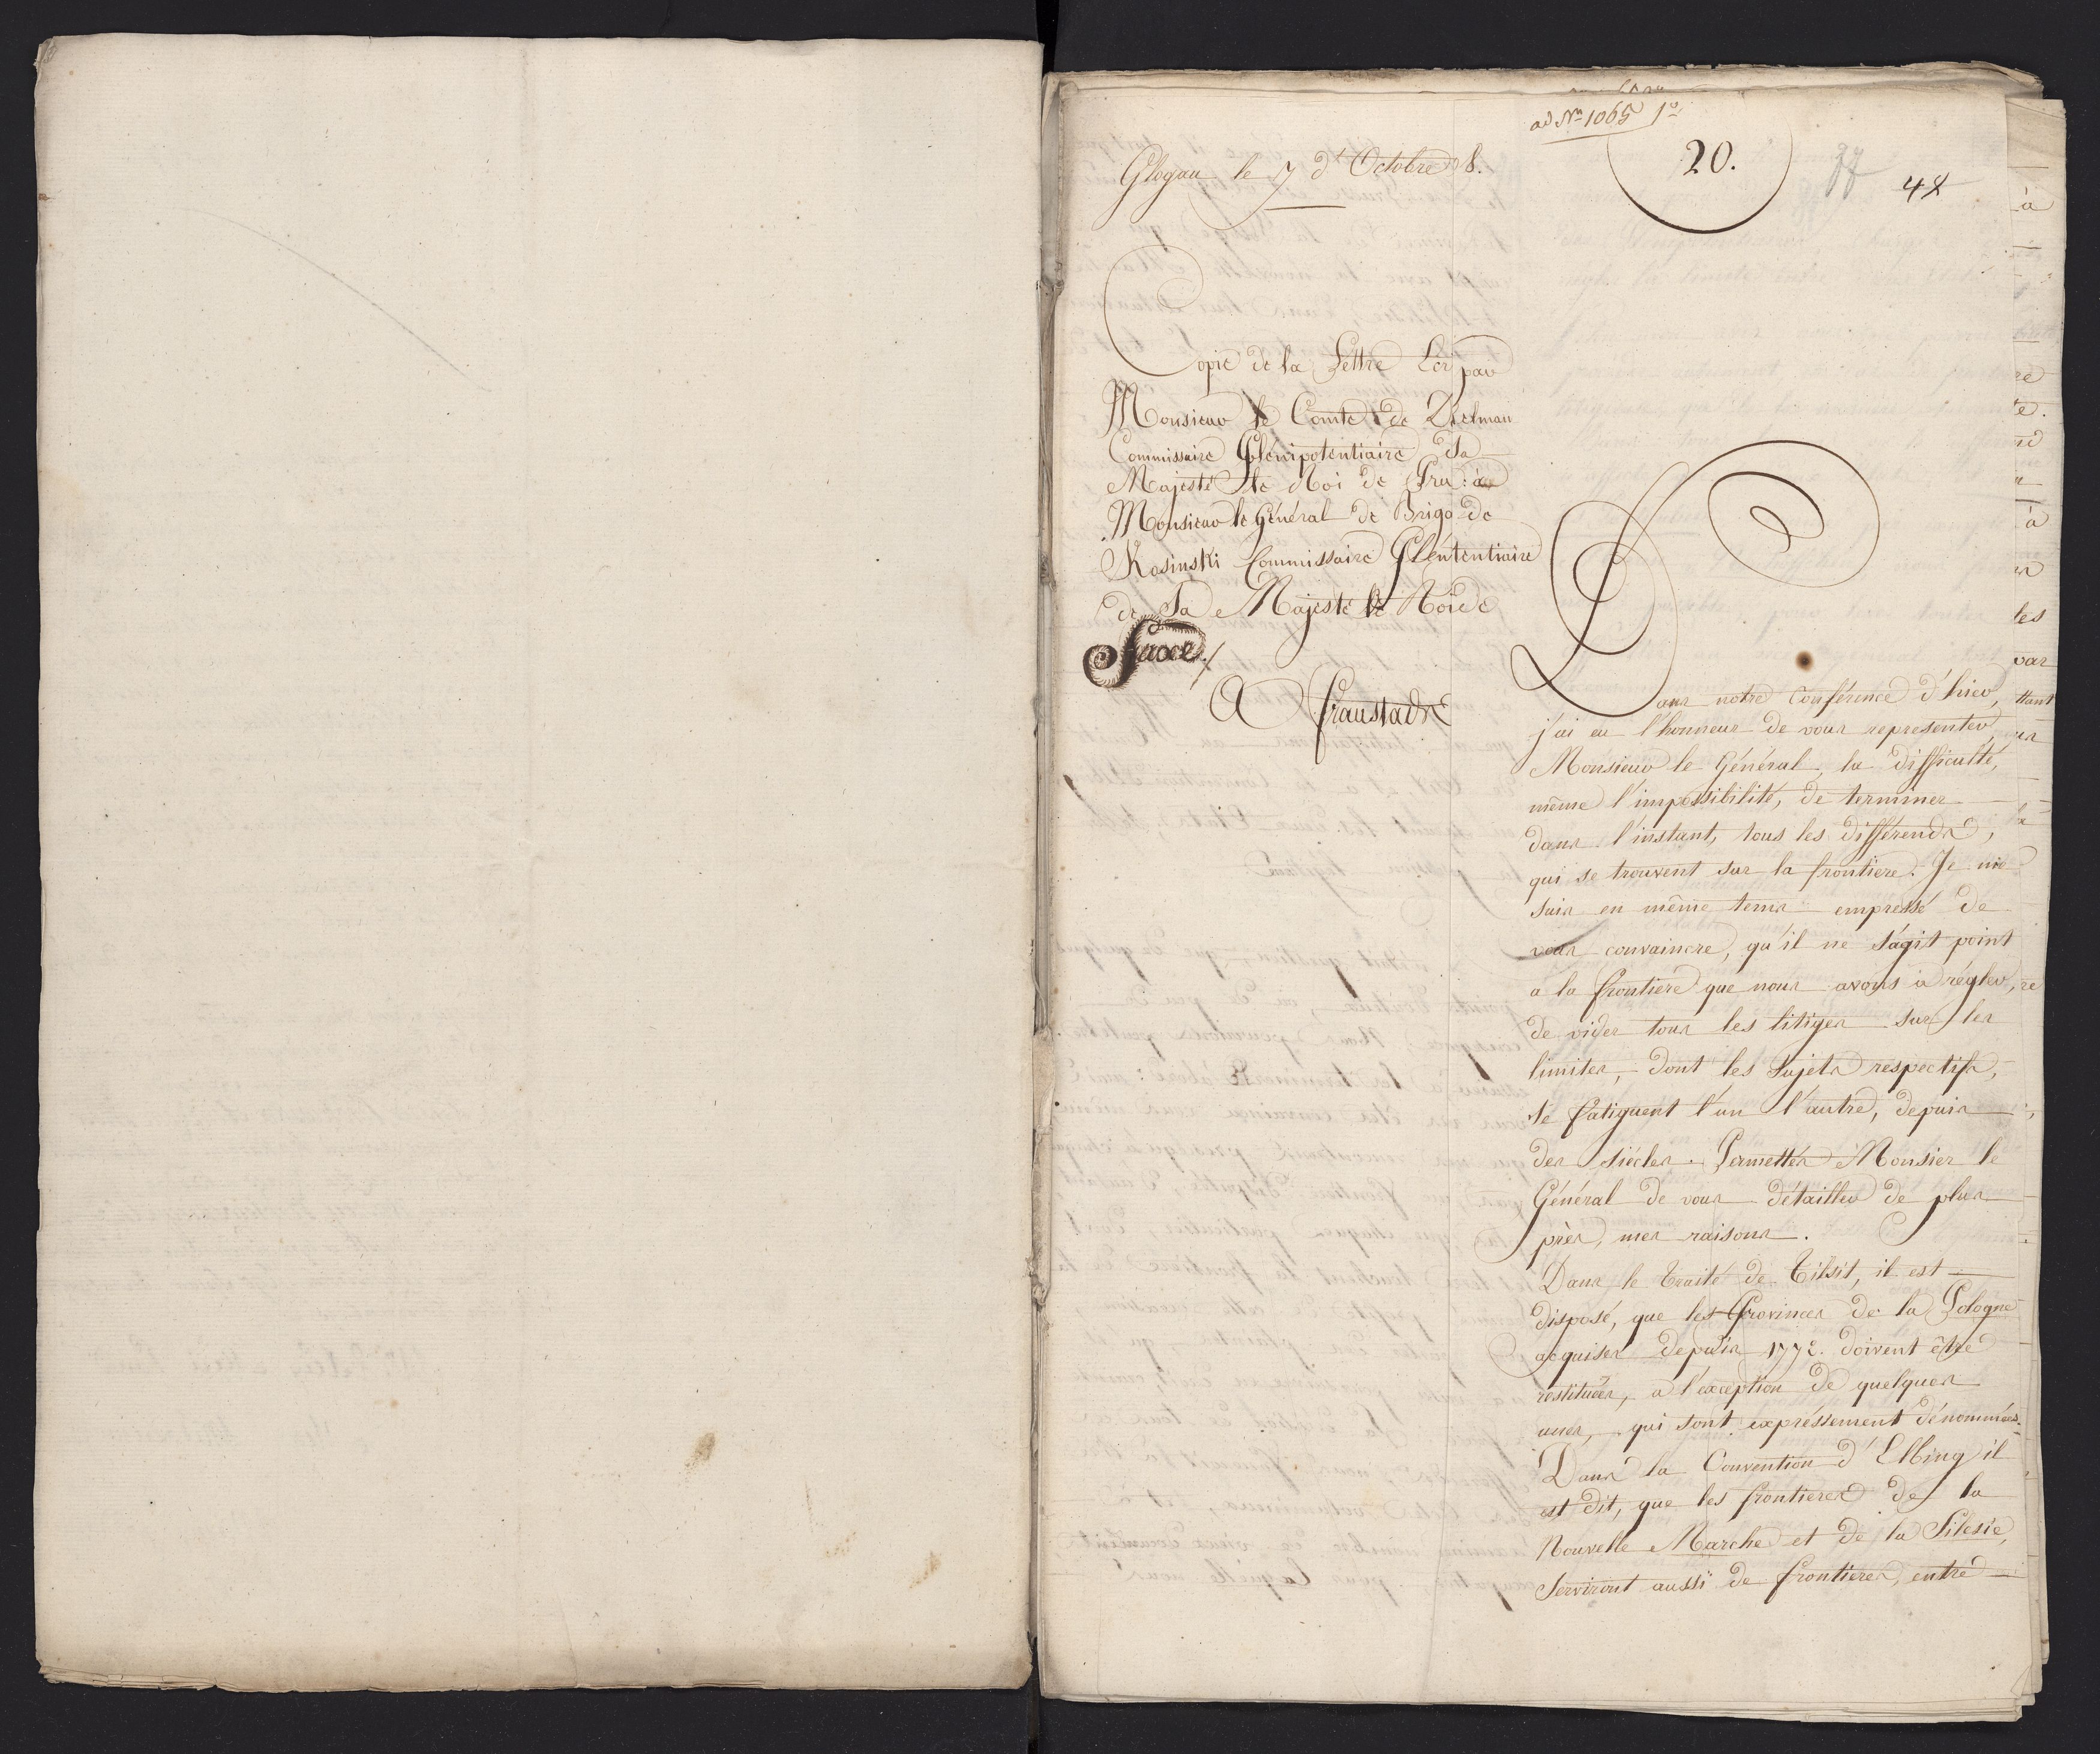 ad Nro 1065 1o
20.
48
Glogau le 7 d'Octobre 8.
Copie de la Lettre Ecri par
Monsieur le Comte de Dielman
Commissaire Plénipotentiaire Sa
Majesté le Roi de Pru: à
Monsieur le Général de Brigade
Kosinski Commissaire Pléntentiaire
de Sa Majesté le Roi de
Saxe./
A Fraustadt
Dans notre Conférence d'hier,
j'ai eu l'honneur de vous representer,
Monsieur le Général, la difficulté,
même l'impossibilité, de terminer
dans l'instant, tous les différends,
qui se trouvent sur la frontiere. Je me
suis en même tems empressé de
vous convaincre, qu'il ne s'agit point
a la frontiere que nous avons à régler,
de vider tous les litiges sur les
limites, dont les Sujets respectifs,
se fatiguent l'un l'autre, depuis
des siécles. Permettés Monsier le
Général de vous détailler de plus
près, mes raisons.
Dans le Traité de Tilsit, il est
disposé, que les Provinces de la Pologne
acquises depuis 1772. doivent être
restituées, a l'exception de quelques
unes, qui sont expréssement dénommées.
Dans la Convention d'Elbing il
est dit, que les frontieres de la
Nouvelle Marche et de la Silesie,
Serviront aussi de frontieres, entre